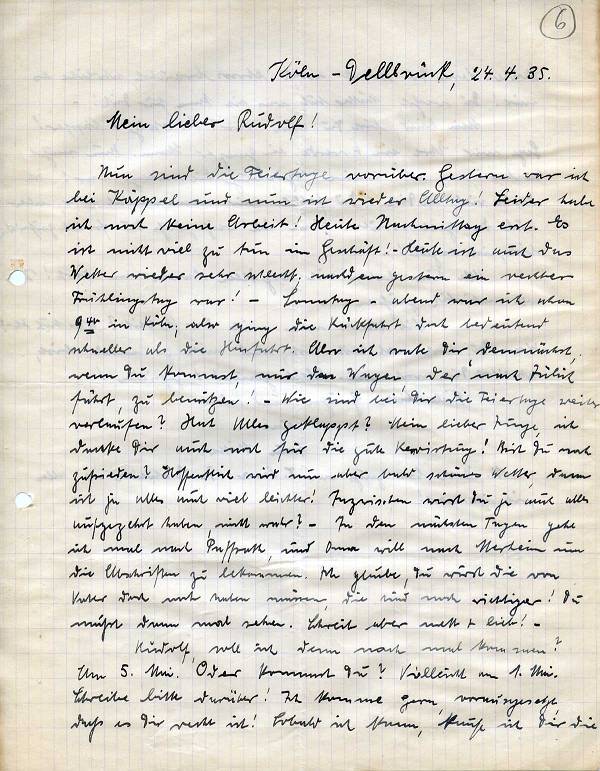 6
Köln - Dellbrück, 24. 4. 35.
Mein lieber Rudolf!
Nun sind die Feiertage vorüber. Gestern war ich
bei Käppel und nun ist wieder Alltag! Leider habe
ich noch keine Arbeit! Heute Nachmittag erst. Es
ist nicht viel zu tun im Geschäft! - Heute ist auch das
Wetter wieder sehr schlecht, nachdem gestern ein rechter
Frühlingstag war! - Sonntag - abend war ich schon
9 40 in Köln, also ging die Rückfahrt doch bedeutend
schneller als die Hinfahrt. Also ich rate Dir, demnächst,
wenn Du kommst, nur den Wagen, der nach Jülich
fährt, zu benützen! - Wie sind bei Dir die Feiertage weiter
verlaufen? Hat Alles geklappt? Mein lieber Junge, ich
danke Dir auch noch für die gute Bewirtung! Bist Du noch
zufrieden? Hoffentlich wird nun aber bald schönes Wetter, dann
ist ja alles auch viel leichter! Inzwischen wirst Du ja auch alles
aufgezehrt haben, nicht wahr? - In den nächsten Tagen gehe
ich mal nach Paffrath, und Oma will nach Merheim um
die Abschriften zu bekommen. Ich glaube, Du wirst die von
Vater doch auch haben müssen, die sind noch wichtiger! Du
mußt dann mal sehen. Schreib aber nett + lieb! -
Rudolf, soll ich denn noch mal kommen?
Am 5. Mai. Oder kommst Du? Vielleicht am 1. Mai.
Schreibe bitte darüber! Ich komme gern, vorausgesetzt
daß es Dir recht ist! Sobald ich kann, kaufe ich Dir die